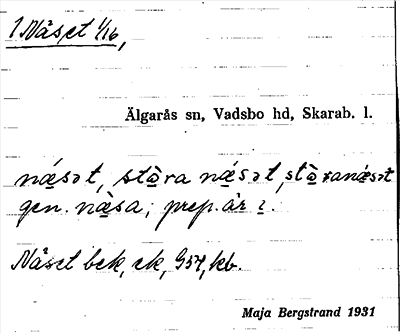 1 Näset 1/16,
Älgarås sn, Vadsbo hd, Skarab. l.
næ̀sət, stɷ̀ra næ̀sət, stɷ̀ranæ̀sət
gen. næ̀sa; prep. är ı.
Näset bek, ek, G54, kb.
Maja Bergstrand 1931